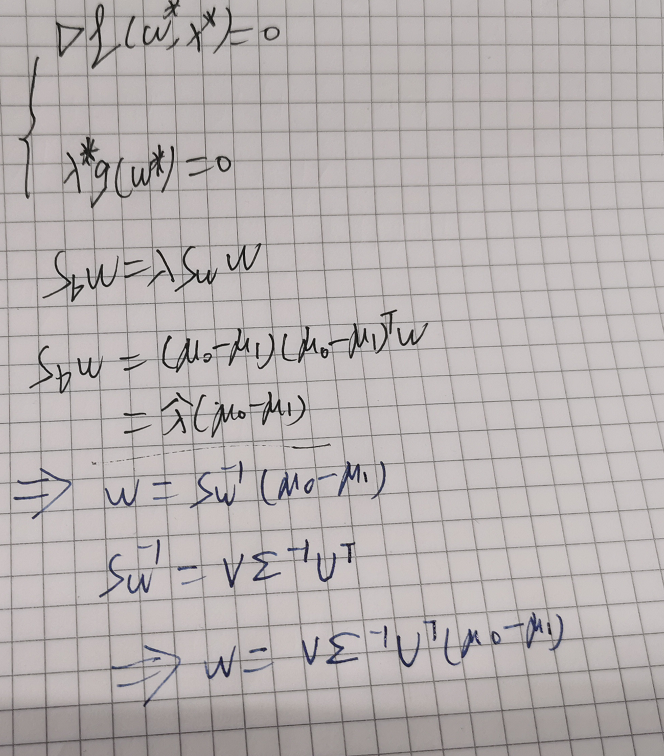 ∇L(w*, λ*) = 0
λ*g(w*) = 0
S_b w = λ S_w w
S_b w = (μ₀-μ₁)(μ₀-μ₁)ᵀw
= λ̂(μ₀-μ₁)
⇒ w = S_w⁻¹(μ₀-μ₁)
S_w⁻¹ = VΣ⁻¹Uᵀ
⇒ w = VΣ⁻¹Uᵀ(μ₀-μ₁)